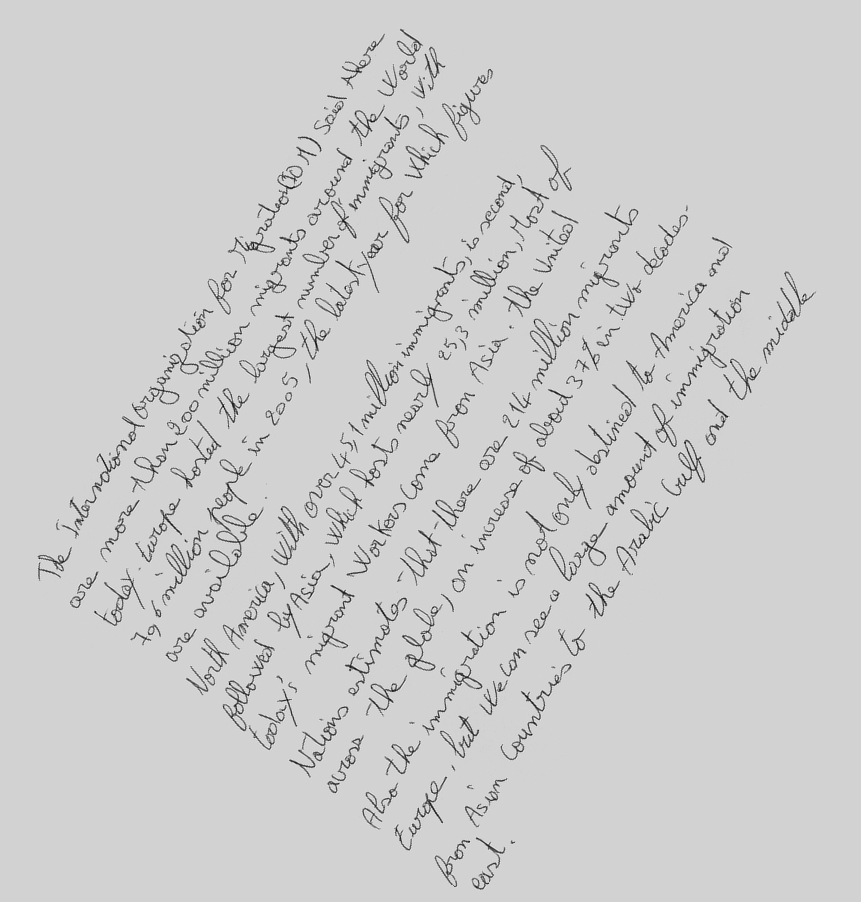 The International Organization for Migration (IOM) Said there
are more than 200 million migrants around the World
today. Europe hosted the largest number of immigrants, with
70,6 million people in 2005, the latest year for which figures
are available.
North America, with over 45,1 million immigrants, is second,
followed by Asia, which hosts nearly 25,3 million, Most of
today's migrant Workers come from Asia. the United
Nations estimates that there are 214 million migrants
across the globe, an increase of about 37% in two decades.
Also the immigration is not only destined to America and
Europe, but we can see a large amount of immigration
from Asian Countries to the Arabic Gulf and the middle
east.